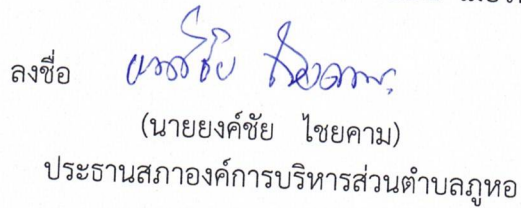 ลงชื่อ
(นายยงค์ชัย ไชยคาม)
ประธานสภาองค์การบริหารส่วนตำบลภูหอ